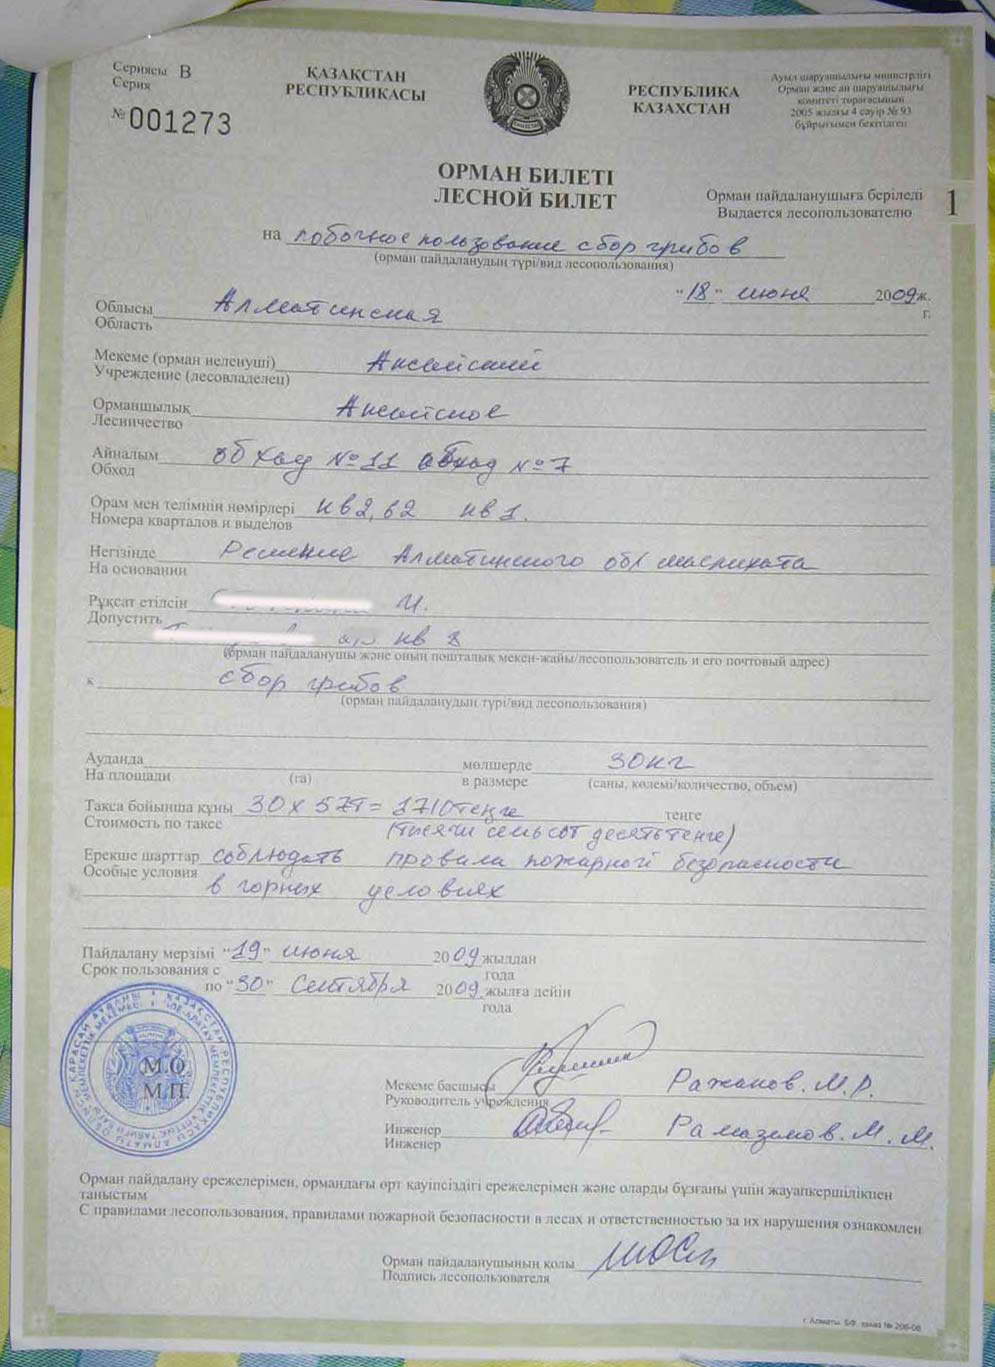 Сериясы В
Серия
№ 001273
ҚАЗАҚСТАН
РЕСПУБЛИКАСЫ
РЕСПУБЛИКА
КАЗАХСТАН
Ауыл шаруашылығы министрлігі
Орман және аң шаруашылығы
комитеті төрағасының
2005 жылғы 4 сәуір № 93
бұйрығымен бекітілген
ОРМАН БИЛЕТІ
ЛЕСНОЙ БИЛЕТ
Орман пайдаланушыға беріледі
Выдается лесопользователю
1
на побочное пользование сбор грибов
(орман пайдаланудың түрі/вид лесопользования)
"18" июня 2009ж.
г.
Облысы Алматинская
Область
Мекеме (орман иеленуші) Аксайский
Учреждение (лесовладелец)
Орманшылық Аксайское
Лесничество
Айналым обход №11 обход №7
Обход
Орам мен телімнің нөмірлері кв 2, 62 кв 1.
Номера кварталов и выделов
Негізінде Решение Алматинского обл маслихата
На основании
Рұқсат етілсін И.
Допустить
кв 8
(орман пайдаланушы және оның пошталық мекен-жайы/лесопользователь и его почтовый адрес)
к сбор грибов
(орман пайдаланудың түрі/вид лесопользования)
Ауданда мөлшерде 30кг
На площади (га) в размере (саны, көлемі/количество, объем)
Такса бойынша құны 30 х 57т = 1710теңге теңге
Стоимость по таксе (тысячи семьсот десять тенге)
Ерекше шарттар соблюдать правила пожарной безопасности
Особые условия в горных условиях
Пайдалану мерзімі "19" июня 2009 жылдан
Срок пользования с года
по "30" Сентября 2009 жылға дейін
года
М.О.
М.П.
Мекеме басшысы Ражапов. М.Р.
Руководитель учреждения
Инженер Рамазанов. М. М.
Инженер
Орман пайдалану ережелерімен, ормандағы өрт қауіпсіздігі ережелерімен және оларды бұзғаны үшін жауапкершілікпен
таныстым
С правилами лесопользования, правилами пожарной безопасности в лесах и ответственностью за их нарушения ознакомлен
Орман пайдаланушының қолы
Подпись лесопользователя
г. Алматы. БФ. заказ № 206-08